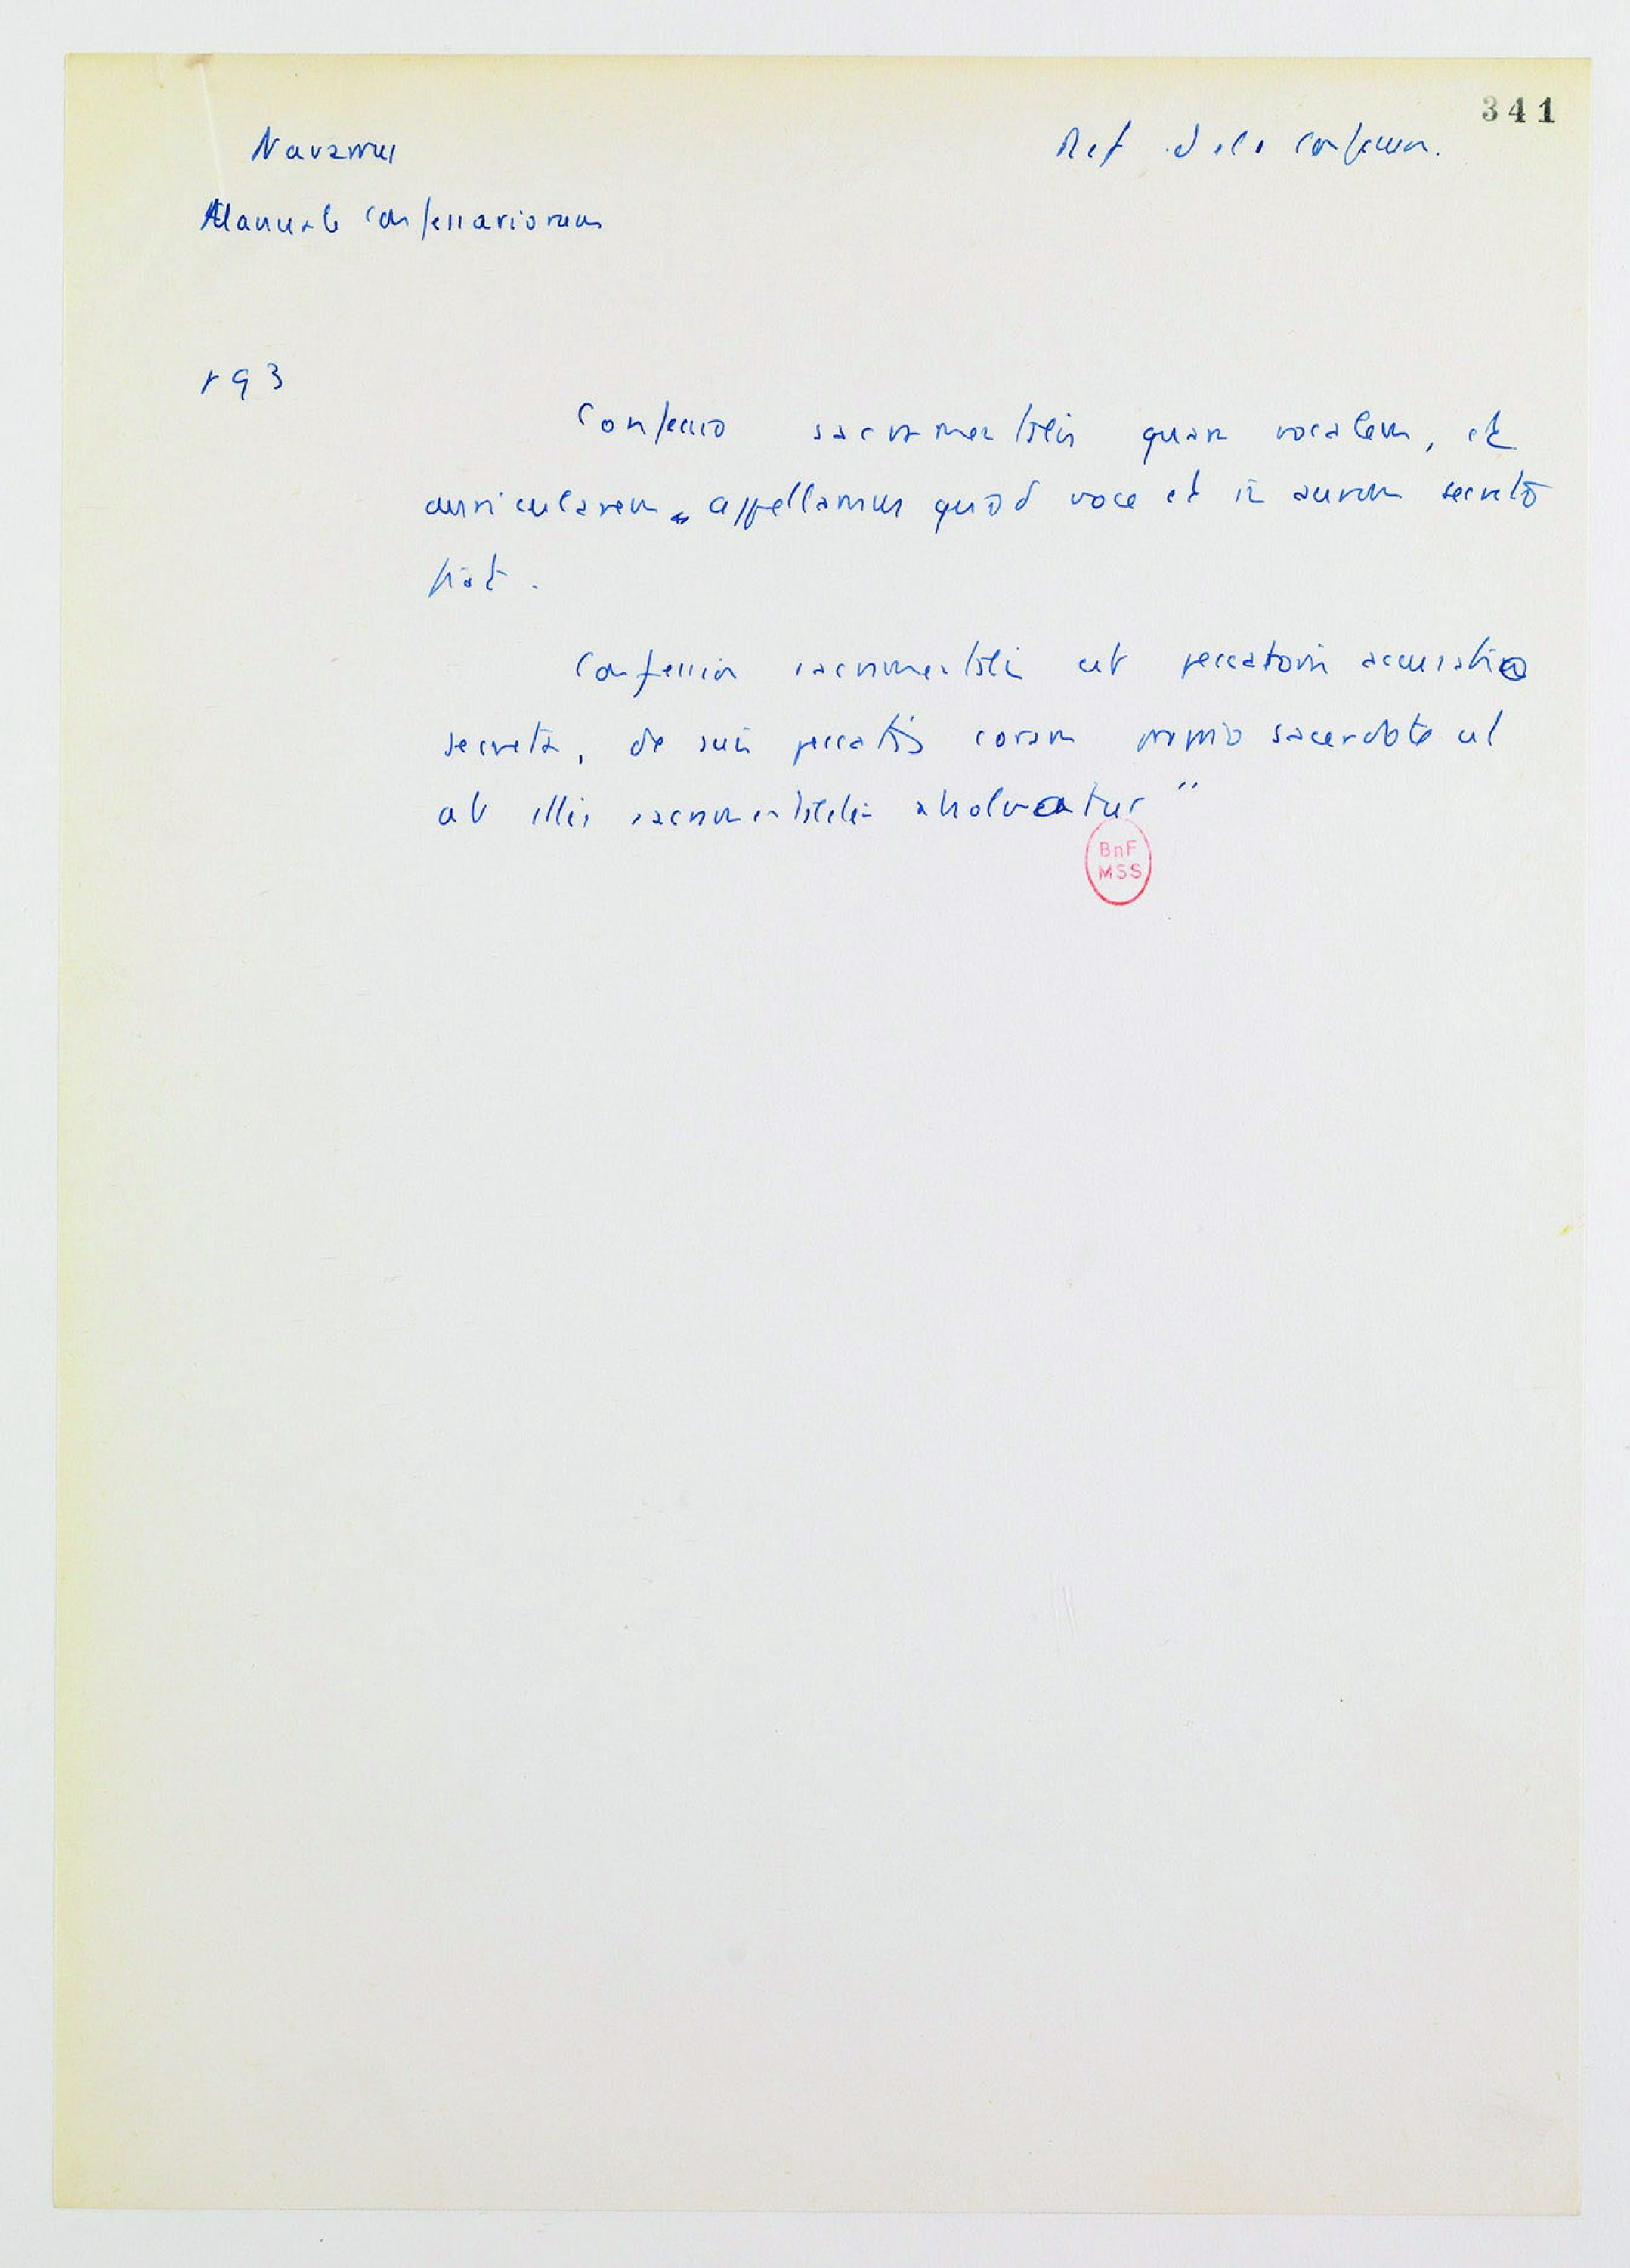 341
Navarrus
Def de la confession.
Manuale confessariorum
p 93
Confessio sacramentalis quam vocalem, et
auricularem appellamus quod voce et in aurem secreto
fiat.
Confessio sacramentalis est peccatoris accusatio
secreta, de suis peccatis coram proprio sacerdote ut
ab illis sacramentaliter absolvatur"
BnF
MSS